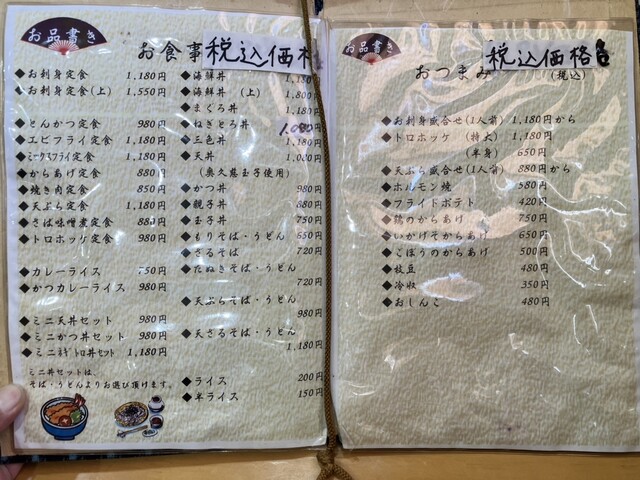 お品書き
お食事 税込価格
◆お刺身定食 1,180円
◆お刺身定食(上) 1,550円
◆とんかつ定食 980円
◆エビフライ定食 1,180円
◆ミックスフライ定食 1,180円
◆からあげ定食 880円
◆焼き肉定食 850円
◆天ぷら定食 1,180円
◆さば味噌煮定食 880円
◆トロホッケ定食 980円
◆カレーライス 750円
◆かつカレーライス 980円
◆ミニ天丼セット 980円
◆ミニかつ丼セット 980円
◆ミニネギトロ丼セット 1,180円
ミニ丼セットは、
そば・うどんよりお選び頂けます。
◆海鮮丼 1,180
◆海鮮丼 (上) 1,800
◆まぐろ丼 1,180
◆ねぎとろ丼
◆三色丼 1,180円
◆天丼
(奥久慈玉子使用)
◆かつ丼 980円
◆親子丼 880円
◆玉子丼 750円
◆もりそば・うどん 650円
◆ざるそば 720円
◆たぬきそば・うどん
720円
◆天ぷらそば・うどん
980円
◆天ざるそば・うどん
1,180円
◆ライス 200円
◆半ライス 150円
お品書き
税込価格
おつまみ (税込)
◆お刺身盛合せ(1人前) 1,180円から
◆トロホッケ (特大) 1,180円
(半身) 650円
◆天ぷら盛合せ(1人前) 880円から
◆ホルモン焼 580円
◆フライドポテト 420円
◆鶏のからあげ 750円
◆いかげそからあげ 650円
◆ごぼうのからあげ 500円
◆枝豆 480円
◆冷奴 350円
◆おしんこ 480円